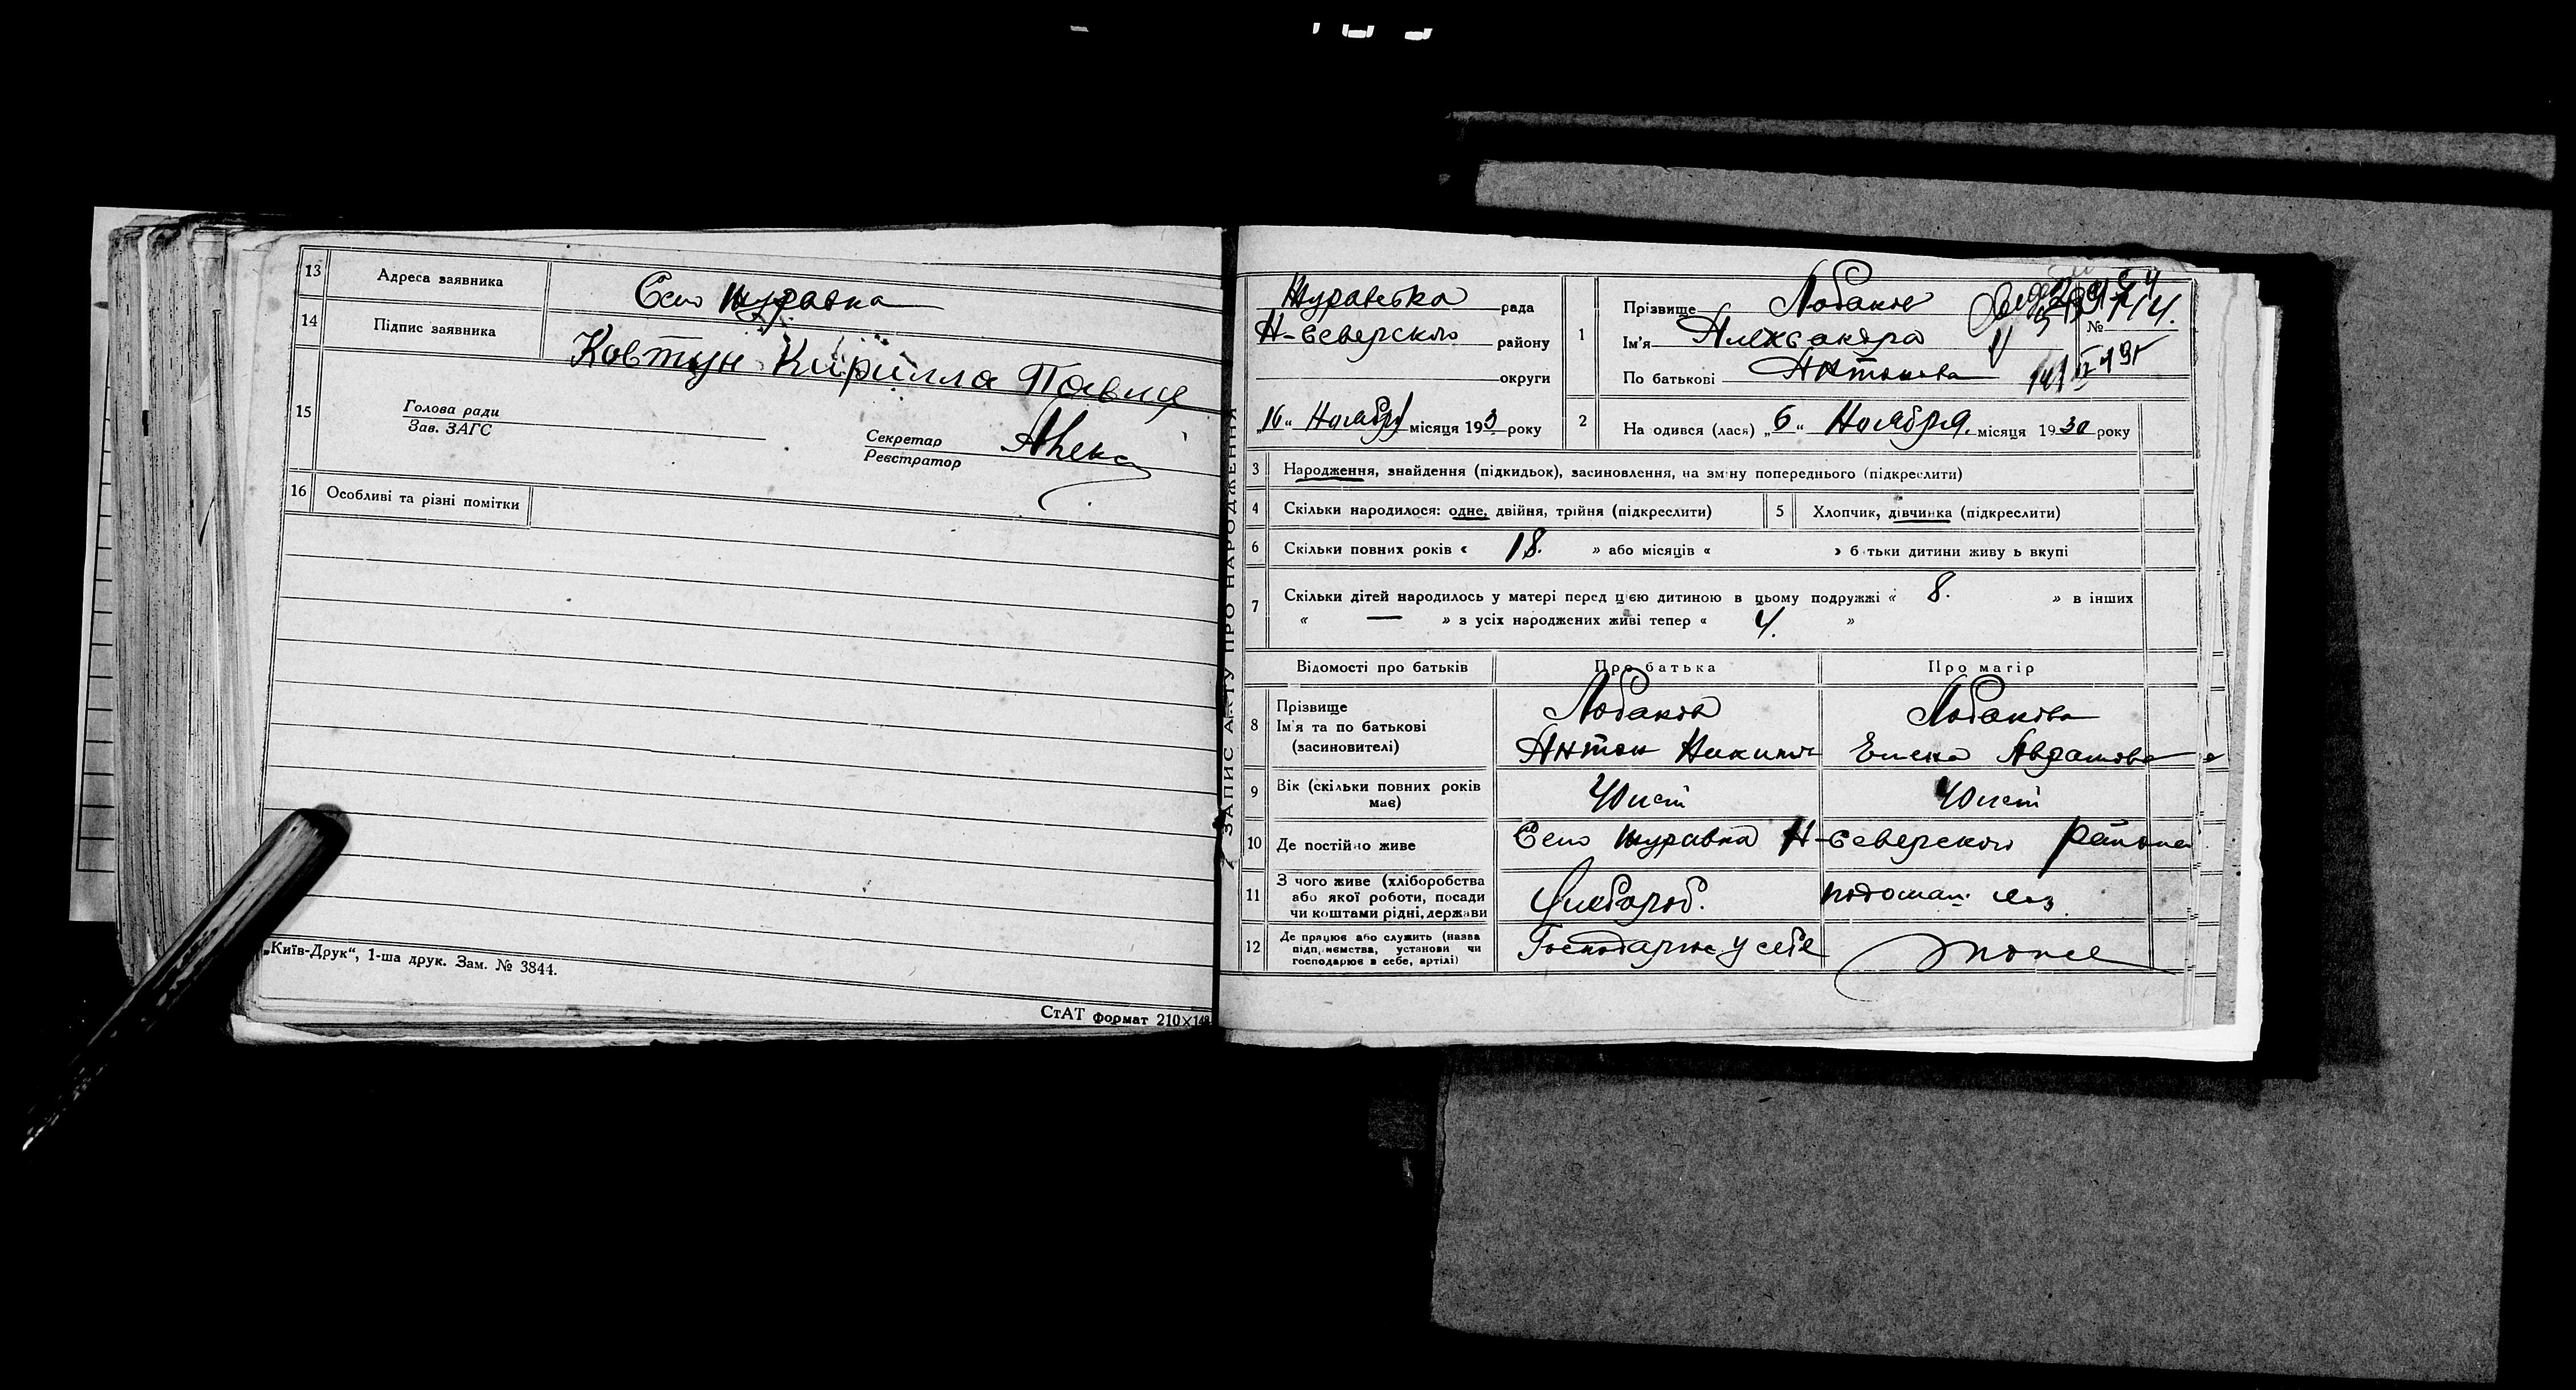 13 Адреса заявника Село Журавка
14 Підпис заявника Ковтун Кирилла Павл
15 Голова ради
Зав. ЗАГС
Секретар
Реєстратор
16 Особливі та різні помітки
„Київ-Друк“, 1-ша друк. Зам. № 3844.
СтАТ формат 210×148
ЗАПИС АКТУ ПРО НАРОДЖЕННЯ
Журавська рада
Н-Северского району
округи
„16“ Ноября місяця 193 0 року
1 Прізвище Лобанов
№ 114.
Ім'я Александра
По батькові Антонова
2 На одився (лася) „6“ Ноября. місяця 1930 року
3 Народження, знайдення (підкидьок), засиновлення, на зміну попереднього (підкреслити)
4 Скільки народилося: одне, двійня, трійня (підкреслити) 5 Хлопчик, дівчинка (підкреслити)
6 Скільки повних років « 18. » або місяців « » б тьки дитини живу ь вкупі
7 Скільки дітей народилось у матері перед цією дитиною в цьому подружжі « 8. » в інших
« — » з усіх народжених живі тепер « 4. »
Відомості про батьків Про батька Про матір
8 Прізвище Лобанов Лобанова
Ім'я та по батькові
(засиновителі) Антон Никит Елена Аврамовна
9 Вік (скільки повних років має) 40 лет 40 лет
10 Де постійно живе Село Журавка Н-Северского района
11 З чого живе (хліборобства
або якої роботи, посади
чи коштами рідні, держави Хлебороб.
12 Де працює або служить (назва
підприємства, установи чи
господарює в себе, артілі) Господарює у себе тоже